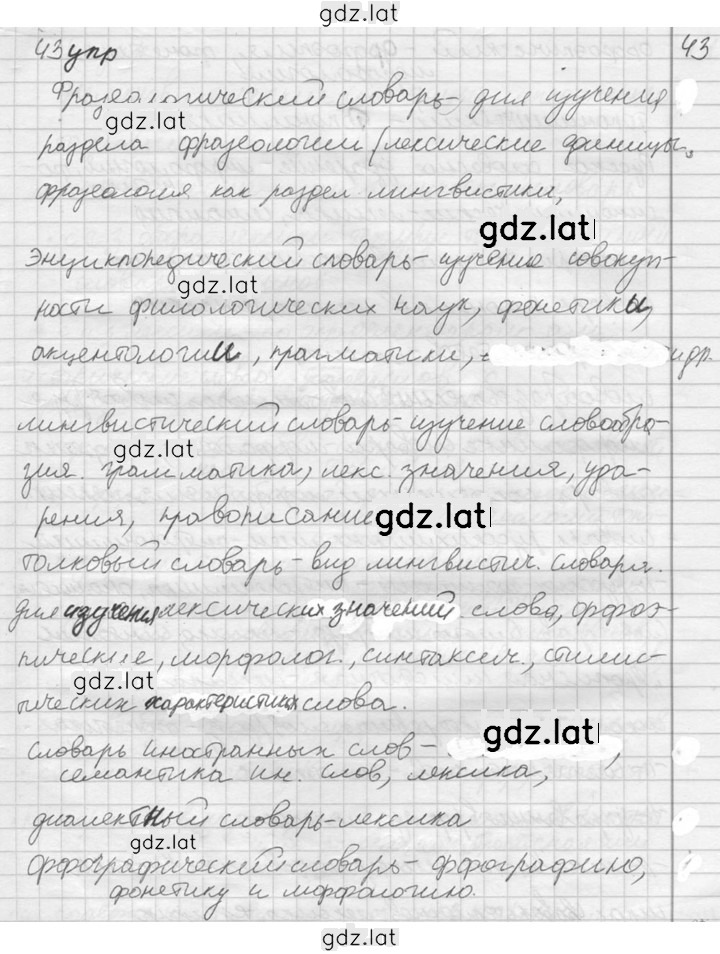 gdz.lat
43 упр
43
Фразеологический словарь - для изучения
gdz.lat
раздела фразеологии (лексические
фразеология как раздел лингвистики,
gdz.lat
Энциклопедический словарь - изучение совокуп-
gdz.lat
ности филологических наук, фонетики,
акцентологии, прагматики, и др.
лингвистический словарь - изучение словообра-
gdz.lat
зия. грамматика, лекс. значения, уда-
рения, правописание
gdz.lat
толковый словарь - вид лингвистич. словаря.
для изучения лексических значений слова, орфоэ-
пические, морфолог., синтаксич., стилис-
gdz.lat
тических характеристик слова.
словарь иностранных слов -
gdz.lat
семантика ин. слов, лексика,
диалектный словарь - лексика
gdz.lat
Орфографический словарь - орфографию,
фонетику и морфологию.
gdz.lat